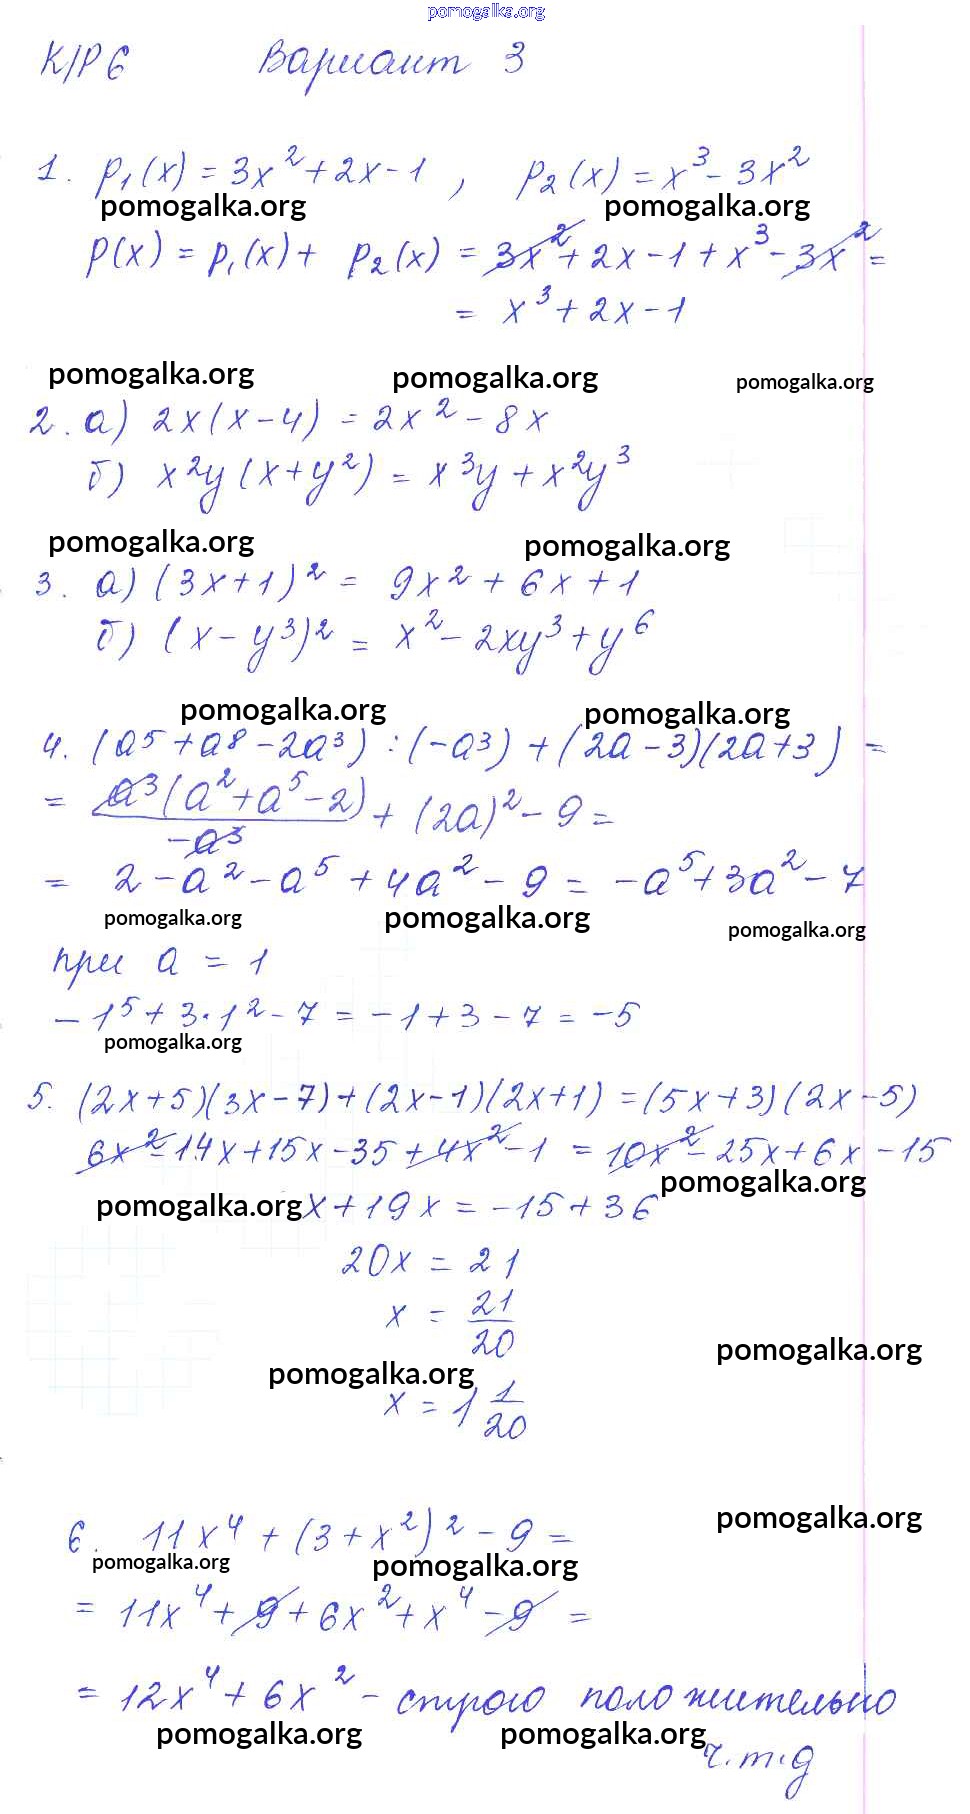 pomogalka.org
К/Р 6 Вариант 3
1. p₁(x) = 3x² + 2x - 1 , p₂(x) = x³ - 3x²
pomogalka.org pomogalka.org
p(x) = p₁(x) + p₂(x) = 3x² + 2x - 1 + x³ - 3x² =
= x³ + 2x - 1
pomogalka.org pomogalka.org pomogalka.org
2. а) 2x(x - 4) = 2x² - 8x
б) x²y(x + y²) = x³y + x²y³
pomogalka.org pomogalka.org
3. а) (3x + 1)² = 9x² + 6x + 1
б) (x - y³)² = x² - 2xy³ + y⁶
pomogalka.org pomogalka.org
4. (a⁵ + a⁸ - 2a³) : (-a³) + (2a - 3)(2a + 3) =
= a³(a² + a⁵ - 2) / -a³ + (2a)² - 9 =
= 2 - a² - a⁵ + 4a² - 9 = -a⁵ + 3a² - 7
pomogalka.org pomogalka.org pomogalka.org
при a = 1
-1⁵ + 3·1² - 7 = -1 + 3 - 7 = -5
pomogalka.org
5. (2x + 5)(3x - 7) + (2x - 1)(2x + 1) = (5x + 3)(2x - 5)
6x² - 14x + 15x - 35 + 4x² - 1 = 10x² - 25x + 6x - 15
pomogalka.org
pomogalka.org x + 19x = -15 + 36
20x = 21
x = 21/20
pomogalka.org
pomogalka.org
x = 1 1/20
pomogalka.org
6. 11x⁴ + (3 + x²)² - 9 =
pomogalka.org pomogalka.org
= 11x⁴ + 9 + 6x² + x⁴ - 9 =
= 12x⁴ + 6x² - строго положительно
pomogalka.org pomogalka.org
ч.т.д